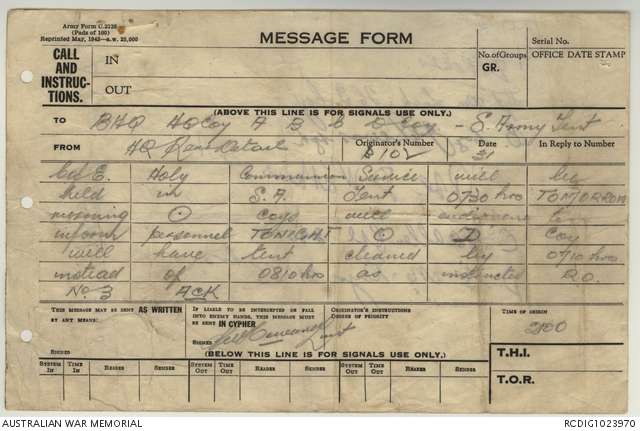 Army Form C.2128
(Pads of 100)
Reprinted May, 1943—a.w. 25,000
MESSAGE FORM
Serial No.
CALL AND INSTRUCTIONS.
IN
OUT
No. of Groups
GR.
OFFICE DATE STAMP
(ABOVE THIS LINE IS FOR SIGNALS USE ONLY.)
TO BHQ HQ Coy A B Coy - S. Army Tent
FROM HQ Rear Detail
Originator's Number
B102
Date
31
In Reply to Number
C. of E. Holy Communion Service will be
held in S.A. Tent 0730 hrs TOMORROW
morning O coys will
inform personnel TONIGHT O D Coy
will have tent cleaned by 0710 hrs
instead of 0810 hrs as instructed R.O.
No. 3 ACK
THIS MESSAGE MAY BE SENT AS WRITTEN
BY ANY MEANS
SIGNED
IF LIABLE TO BE INTERCEPTED OR FALL INTO ENEMY HANDS, THIS MESSAGE MUST BE SENT IN CYPHER
SIGNED
Lieut
ORIGINATOR'S INSTRUCTIONS
DEGREE OF PRIORITY
TIME OF ORIGIN
2100
(BELOW THIS LINE IS FOR SIGNALS USE ONLY.)
T.H.I.
T.O.R.
SYSTEM IN TIME IN READER SENDER SYSTEM OUT TIME OUT READER SENDER SYSTEM OUT TIME OUT READER SENDER
AUSTRALIAN WAR MEMORIAL
RCDIG1023970